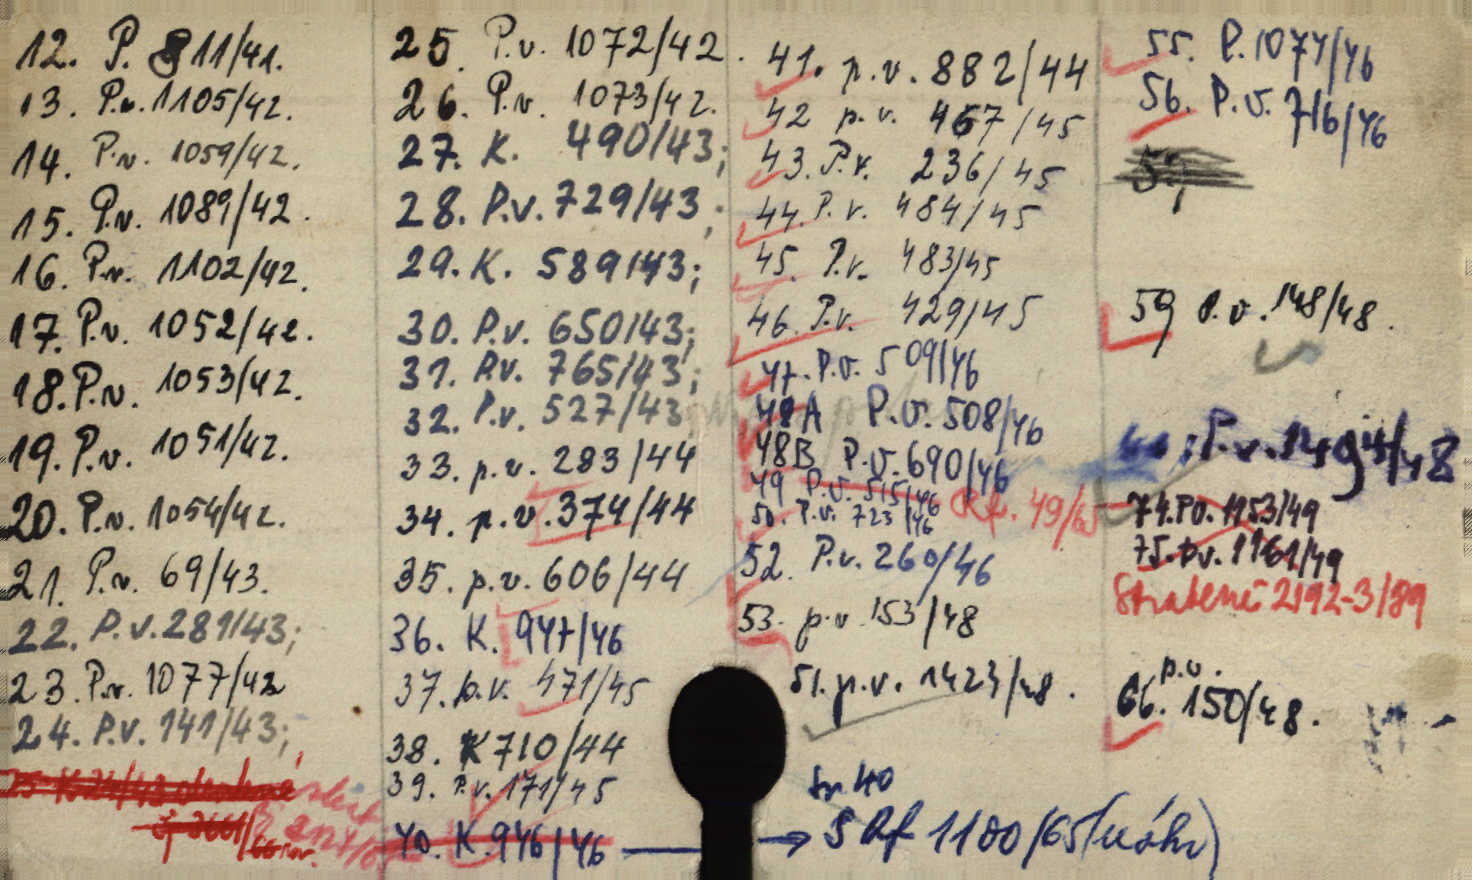 12. P. 811/41.
13. P.v. 1105/42.
14. P.v. 1059/42.
15. P.v. 1089/42.
16. P.v. 1102/42.
17. P.v. 1052/42.
18. P.v. 1053/42.
19. P.v. 1051/42.
20. P.v. 1054/42.
21. P.v. 69/43.
22. P.v. 281/43;
23. P.v. 1077/42
24. P.v. 141/43;
25. P.v. 1072/42.
26. P.v. 1073/42.
27. K. 490/43;
28. P.v. 729/43;
29. K. 589/43;
30. P.v. 650/43;
31. P.v. 765/43;
32. P.v. 527/43;
33. p.v. 283/44
34. p.v. 374/44
35. p.v. 606/44
36. K. 947/46
37. p.v. 471/45
38. K 710/44
39. P.v. 171/45
40. K. 946/46
41. p.v. 882/44
42 p.v. 467/45
43. P.v. 236/45
44. P.v. 484/45
45. P.v. 483/45
46. P.v. 429/45
47. P.v. 509/46
48A P.v. 508/46
48B P.v. 690/46
49 P.v. 515/46
50. P.v. 723/46
Rf. 49/65
52. P.v. 260/46
53. p.v. 153/48
51. p.v. 1423/48.
40
S Rf 1100/65
55. P. 1077/46
56. P.v. 716/46
59 P.v. 148/48.
P.v.
74. P.v. 1153/49
75. P.v. 1161/49
Stratené 2192-3/89
p.v.
66. 150/48.